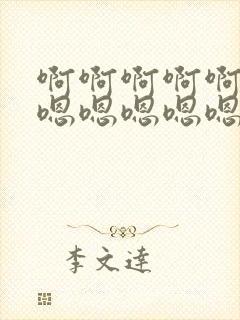 啊啊啊啊啊
嗯嗯嗯嗯嗯
李文達